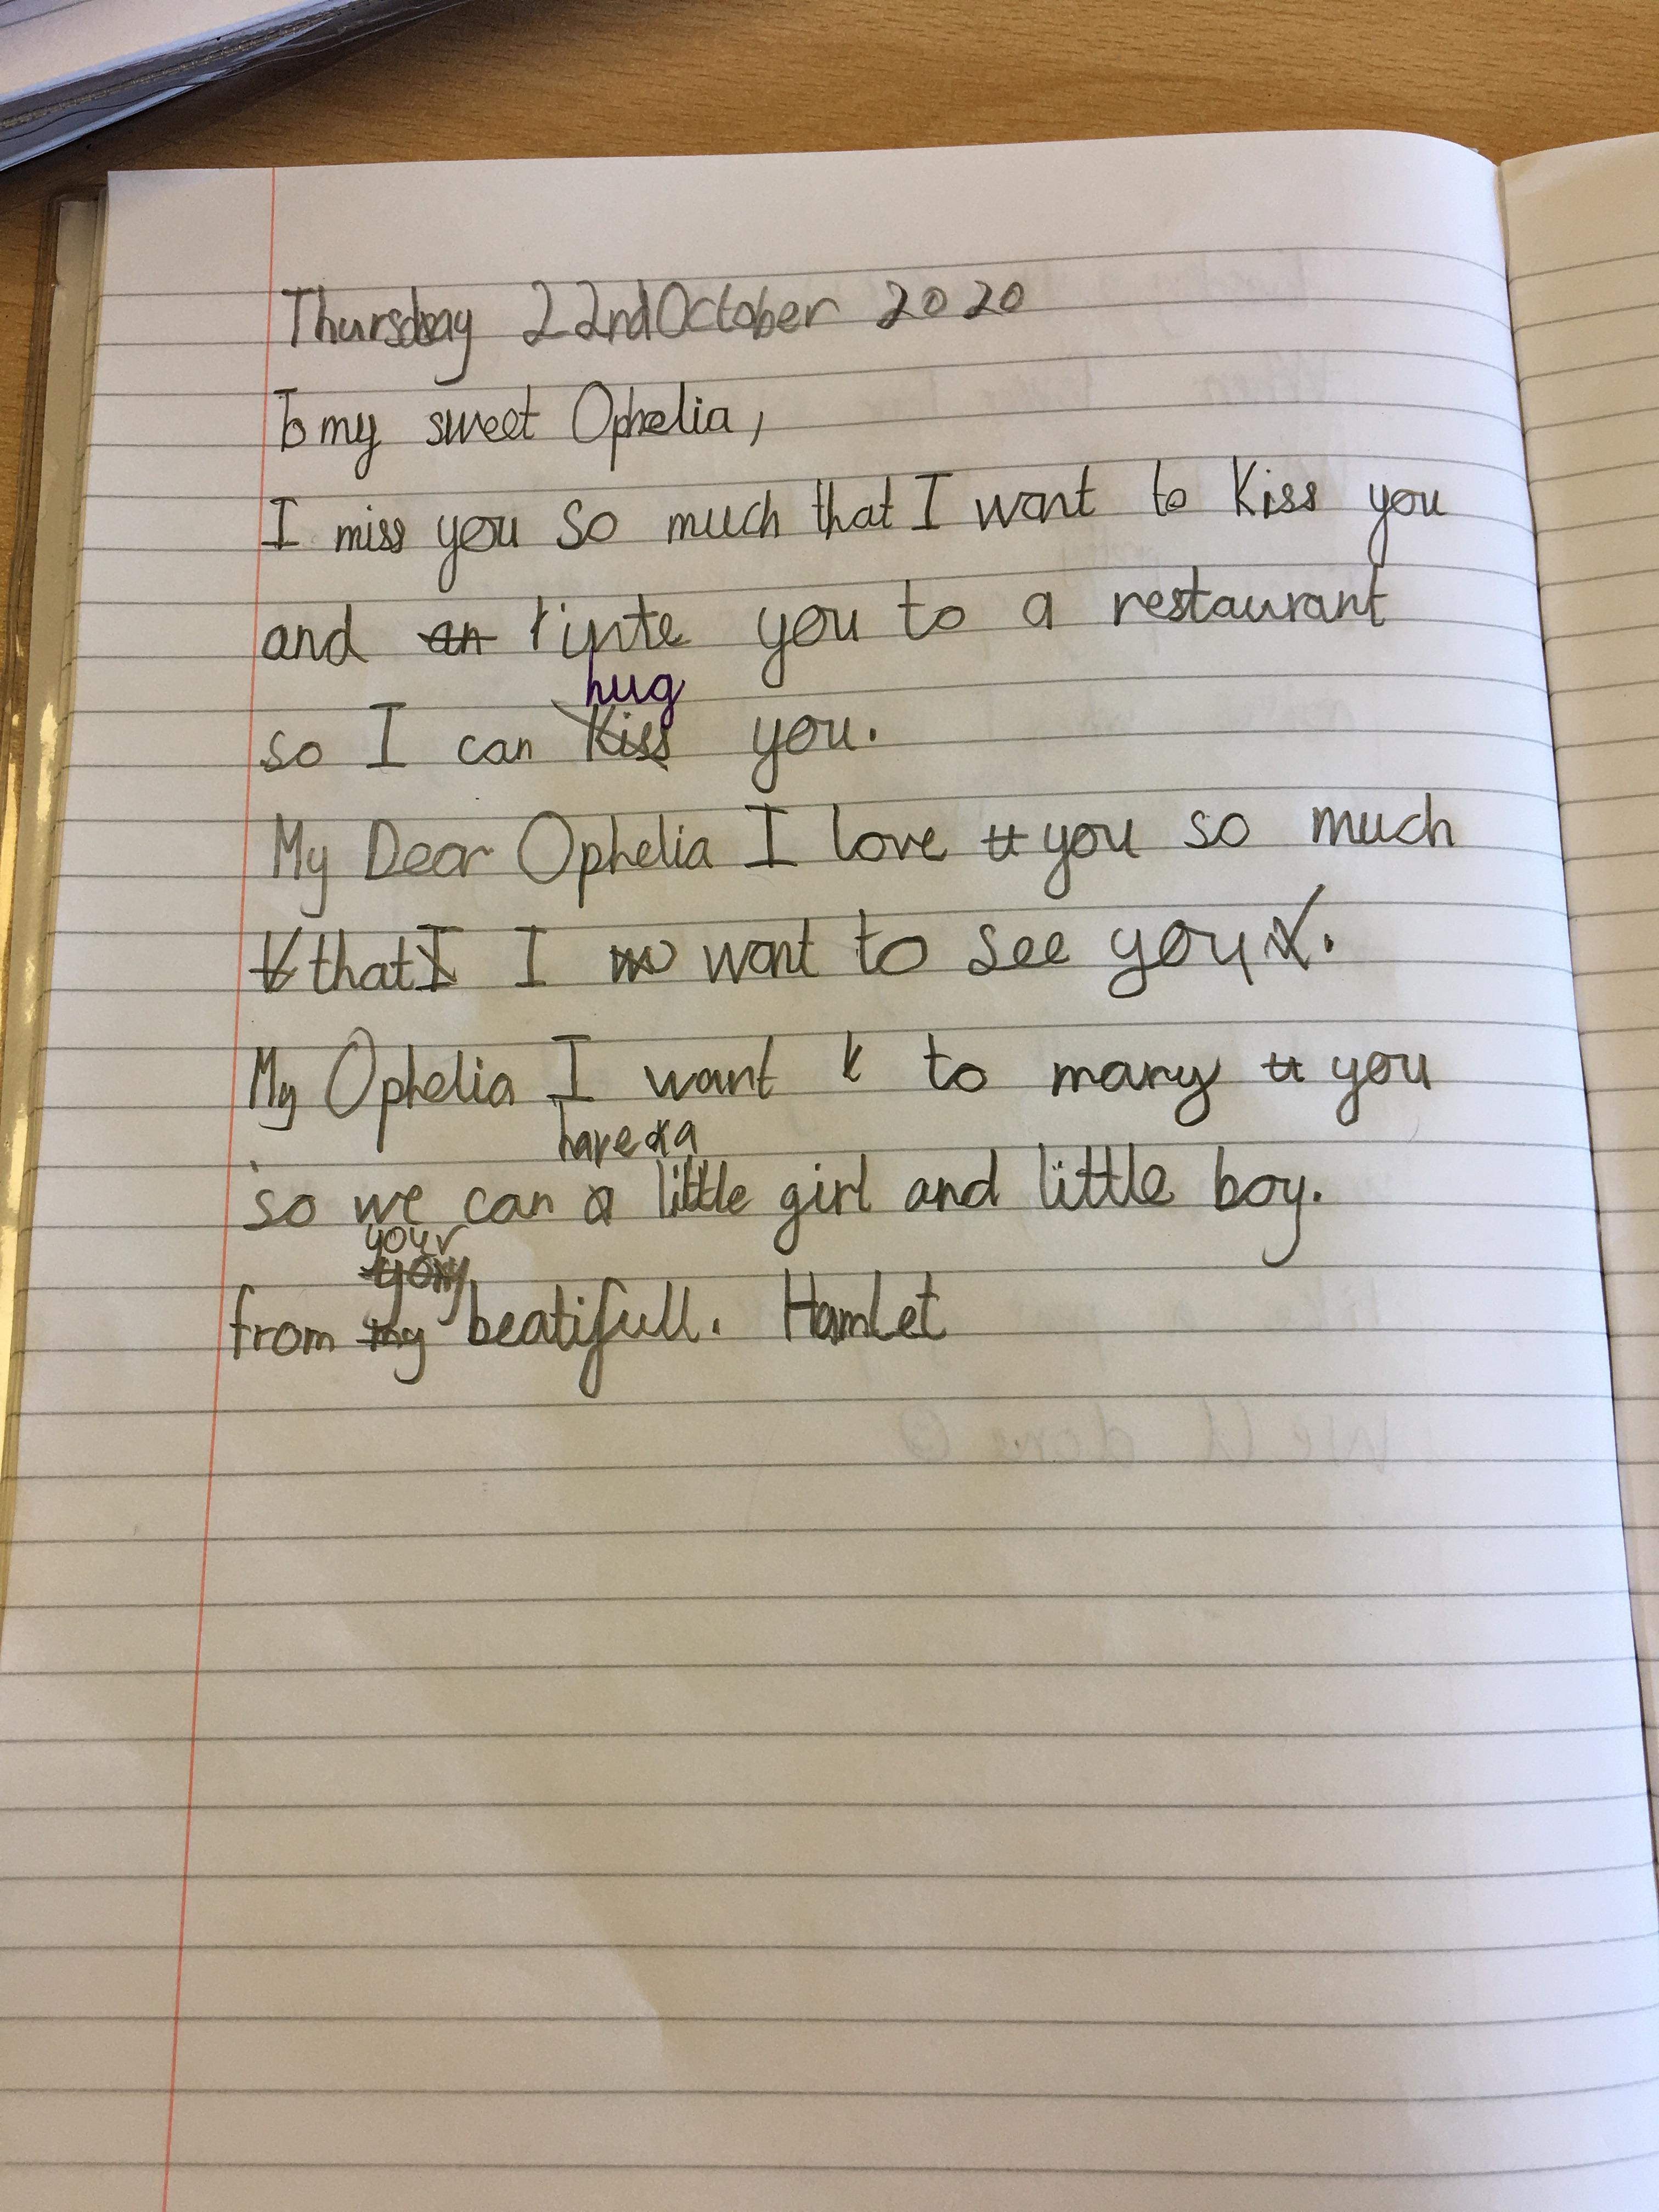 Thursday 22nd October 2020
To my sweet Ophelia,
I miss you so much that I want to kiss you
and an inte you to a restaurant
hug
so I can kiss you.
My Dear Ophelia I love you so much
that I I want to see you.
My Ophelia I want to mary you
have a
so we can a little girl and little boy.
your
from my beatifull. Hamlet